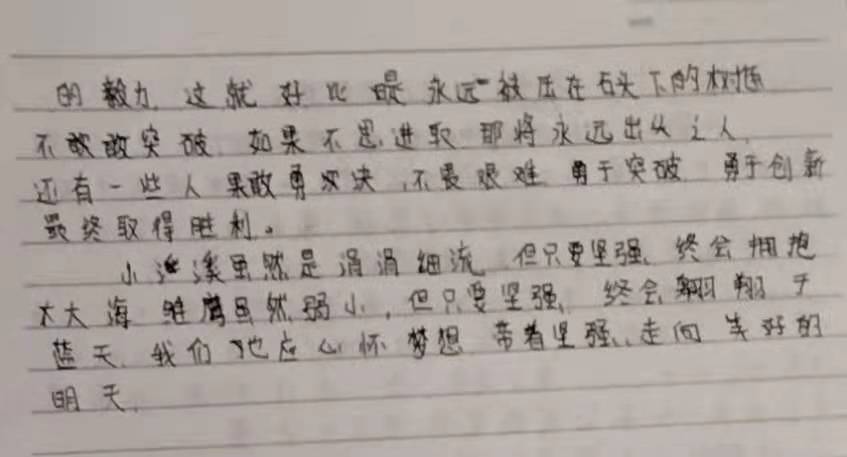 的毅力,这就好比是永远被压在石头下的树苗
不敢敢突破,如果不思进取,那将永远出头之人,
还有一些人果敢勇决,不畏艰难,勇于突破,勇于创新
最终取得胜利。
小溪虽然是涓涓细流,但只要坚强,终会拥抱
大大海,雏鹰虽然弱小,但只要坚强,终会翱翔于
蓝天,我们也应心怀梦想,带着坚强,走向美好的
明天,